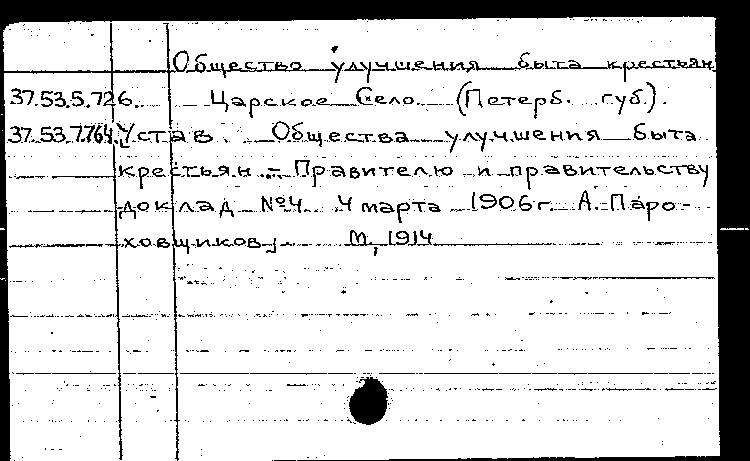 Общество улучшения быта крестьян
37.53.5.726. Царское Село (Петерб. губ.).
37.53.7.764. Устав Общества улучшения быта
крестьян. - Правителю и правительству
доклад №4 4 марта 1906г. А. Паро-
ховщиков;. М., 1914